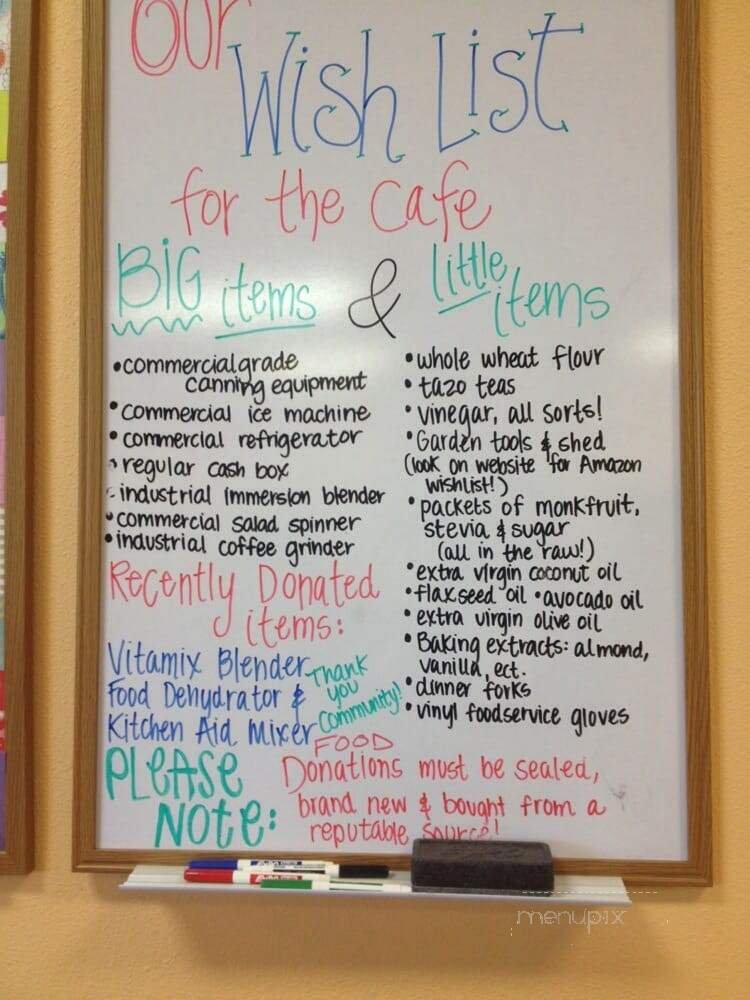 Our
Wish List
for the Cafe
BIG items & little items
•commercial grade
canning equipment
•commercial ice machine
•commercial refrigerator
•regular cash box
•industrial immersion blender
•commercial salad spinner
•industrial coffee grinder
Recently Donated
items:
Vitamix Blender
Food Dehydrator &
Kitchen Aid Mixer
Thank
you
Community!
•whole wheat flour
•tazo teas
•vinegar, all sorts!
•Garden tools & shed
(look on website for Amazon
wishlist!)
•packets of monkfruit,
stevia & sugar
(all in the raw!)
•extra virgin coconut oil
•flaxseed oil •avocado oil
•extra virgin olive oil
•Baking extracts: almond,
vanilla, ect.
•dinner forks
•vinyl foodservice gloves
PLEASE
NOTE:
FOOD
Donations must be sealed,
brand new & bought from a
reputable source!
menupix